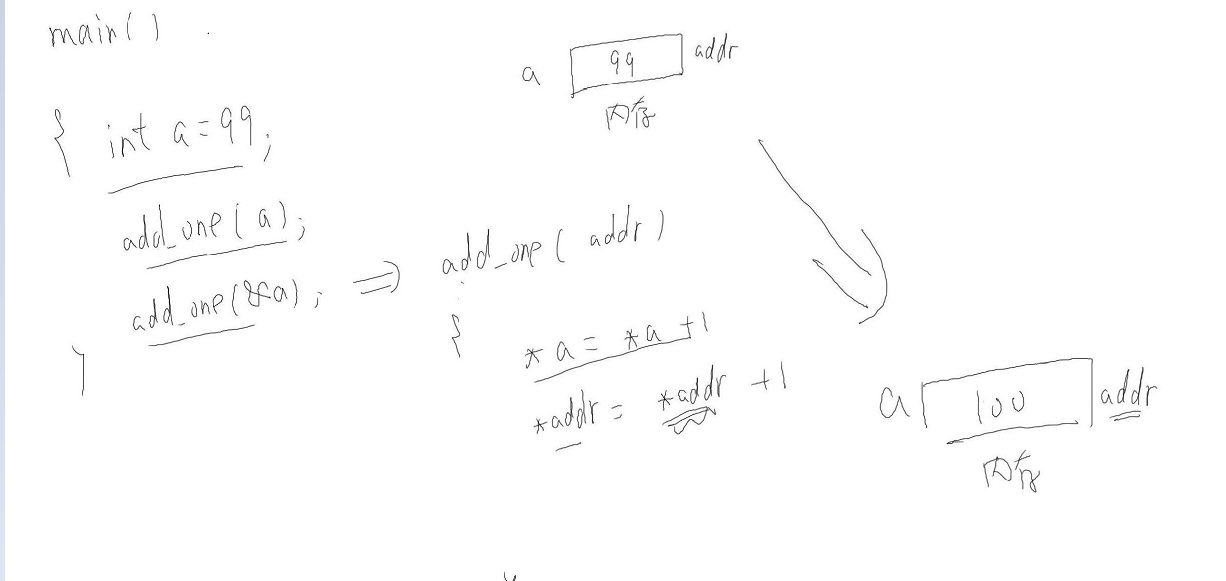 main()
{ int a=99;
add_one(a);
add_one(&a); ⇒ add_one( addr )
}
{ *a = *a +1
*addr = *addr +1
a 99 addr
内存
a 100 addr
内存